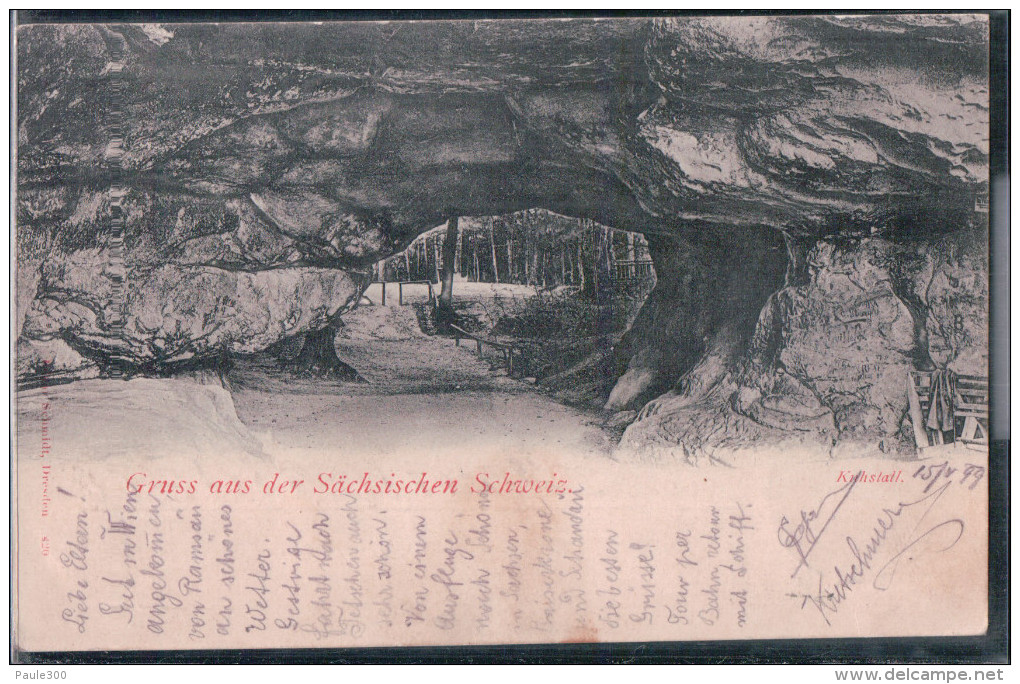 Gruss aus der Sächsischen Schweiz.
Kuhstall.
15/V 99
Schmidt, Dresden
829
Liebe Eltern!
Gut in Wien
angekommen,
von
an schönes
Wetter.
Gestrige
Fahrt nach
auch
sehr schön.
Von einem
Ausfluge
nach Schöna
in Sachsen,
und Schandau
die besten
Grüsse!
Tour per
Bahn, retour
mit Schiff.
Paule300
www.delcampe.net